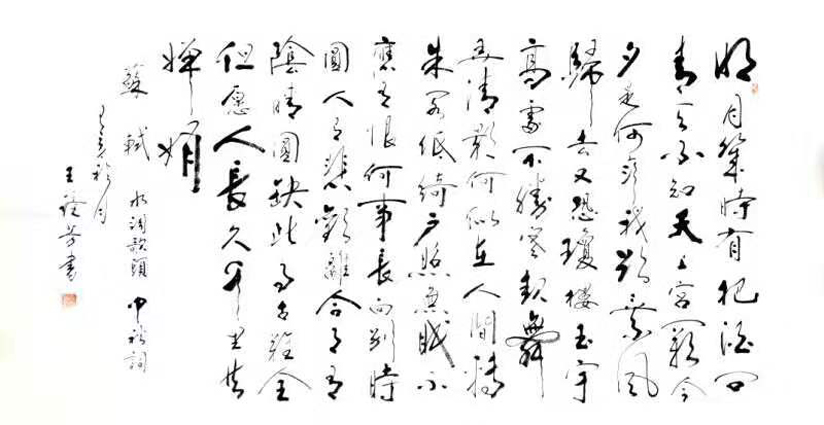 明月幾時有把酒問
青天不知天上宮闕今
夕是何年我欲乘風
歸去又恐瓊樓玉宇
高處不勝寒起舞
弄清影何似在人間轉
朱閣低綺户照無眠不
應有恨何事長向别時
圓人有悲歡離合月有
陰晴圓缺此事古難全
但愿人長久千里共
嬋娟
蘇軾 水調歌頭 中秋詞
己亥秋月
王芳書